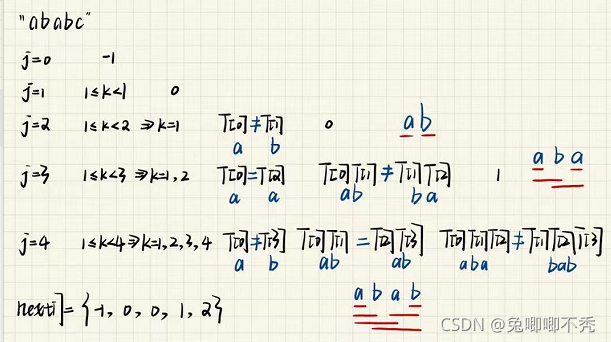 "ababc"
j=0 -1
j=1 1≤k<1 0
j=2 1≤k<2 ⇒k=1 T[0]≠T[1] 0 ab
a b
j=3 1≤k<3 ⇒k=1,2 T[0]=T[2] T[0]T[1]≠T[1]T[2] 1 aba
a a ab ba
j=4 1≤k<4⇒k=1,2,3,4 T[0]≠T[3] T[0]T[1]=T[2]T[3] T[0]T[1]T[2]≠T[1]T[2]T[3]
a b ab ab aba bab
next[j]={-1,0,0,1,2} abab
CSDN @兔唧唧不秃